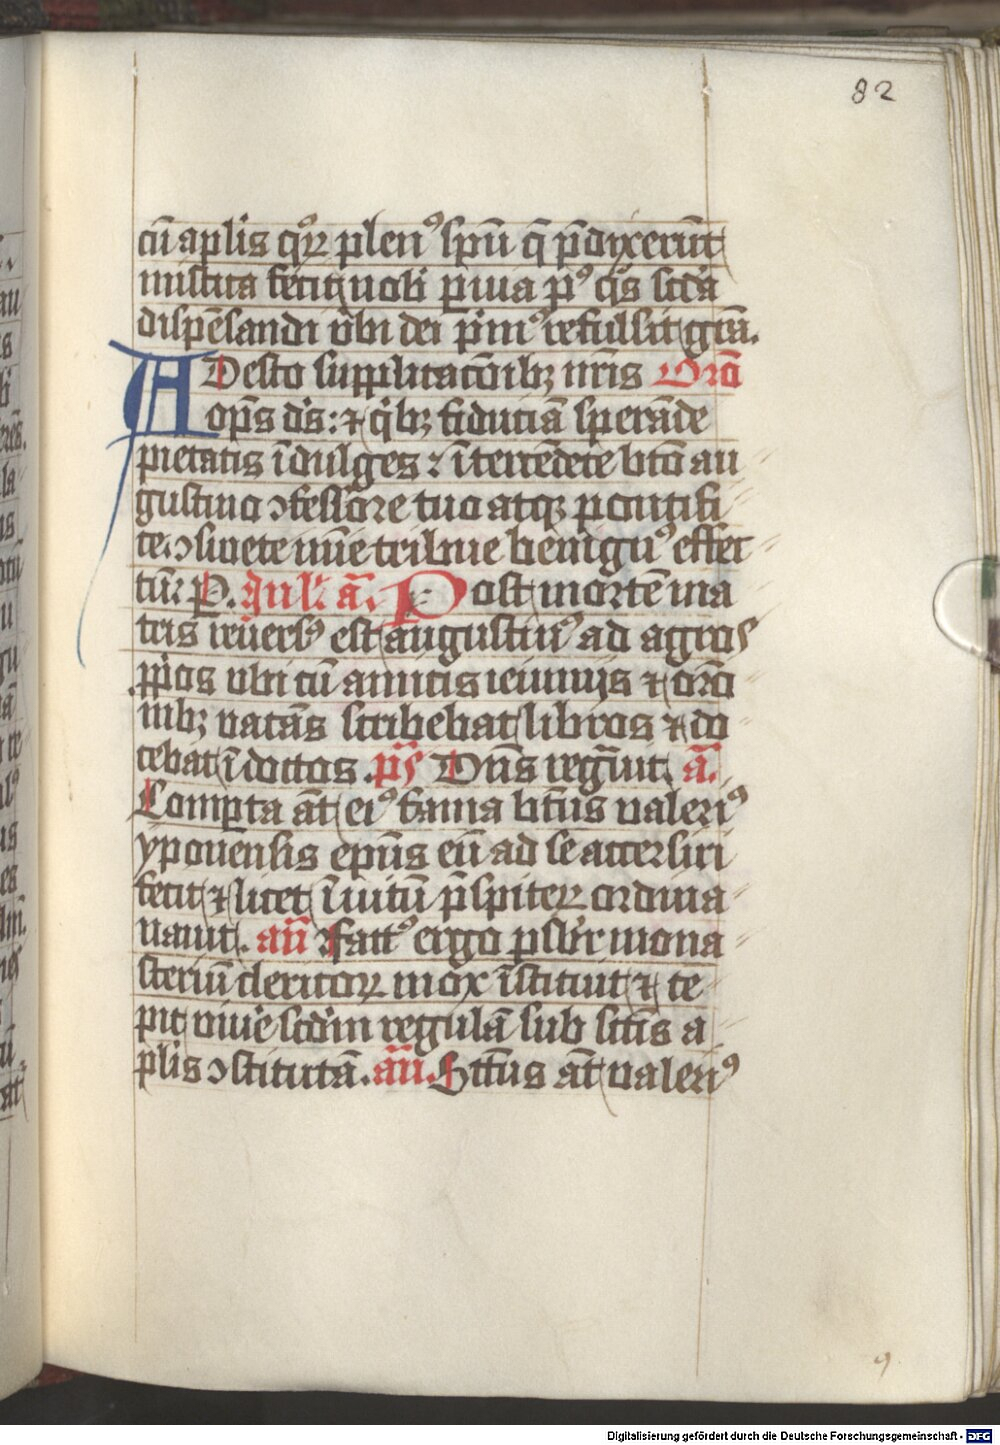 82
cū aplis qꝰꝝ plenꝰ spū q̄ p̄dixerūt
mistica fecit nobͥ ꝑuia pꝰ qͥs scd̄a
dispēsandi v̄bi dei pͥmꝰ refulsit grā.
ADesto supplicacōibꝫ nr̄is Orō
op̄s ds̄: ⁊ qͥbꝫ fiduciā sperāde
pietatis īdulges ⁊ ītercēdēte bt̄o au
gustino ꝯfessōre tuo atqꝫ pontifi
ce ꝯsuete mīe tribue benignꝰ effec
tū
ā. Post mortē ma
tris reuersꝰ est augustinꝰ ad agros
ꝓpͥos vbi cū amicis ieiunijs ⁊ orō
nibꝫ vacās scribebat libros ⁊ do
cebat īdoctos . p̄s Dn̄s regnāuit. ā.
Comꝑta āt eiꝰ fama bt̄us valeriꝰ
yponensis ep̄us eū ad se accersiri
fecit ⁊ licet īuitū p̄spiteꝝ ordina
uauit. an̄ Factꝰ ergo ps̄br̄ mona
steriū clericoꝝ mox īstituit ⁊ ce
pit viuͤe scd̄m regulā sub sctīs a
plis ꝯstitutā. an̄. Sct̄us āt valeriꝰ
9
Digitalisierung gefördert durch die Deutsche Forschungsgemeinschaft - DFG